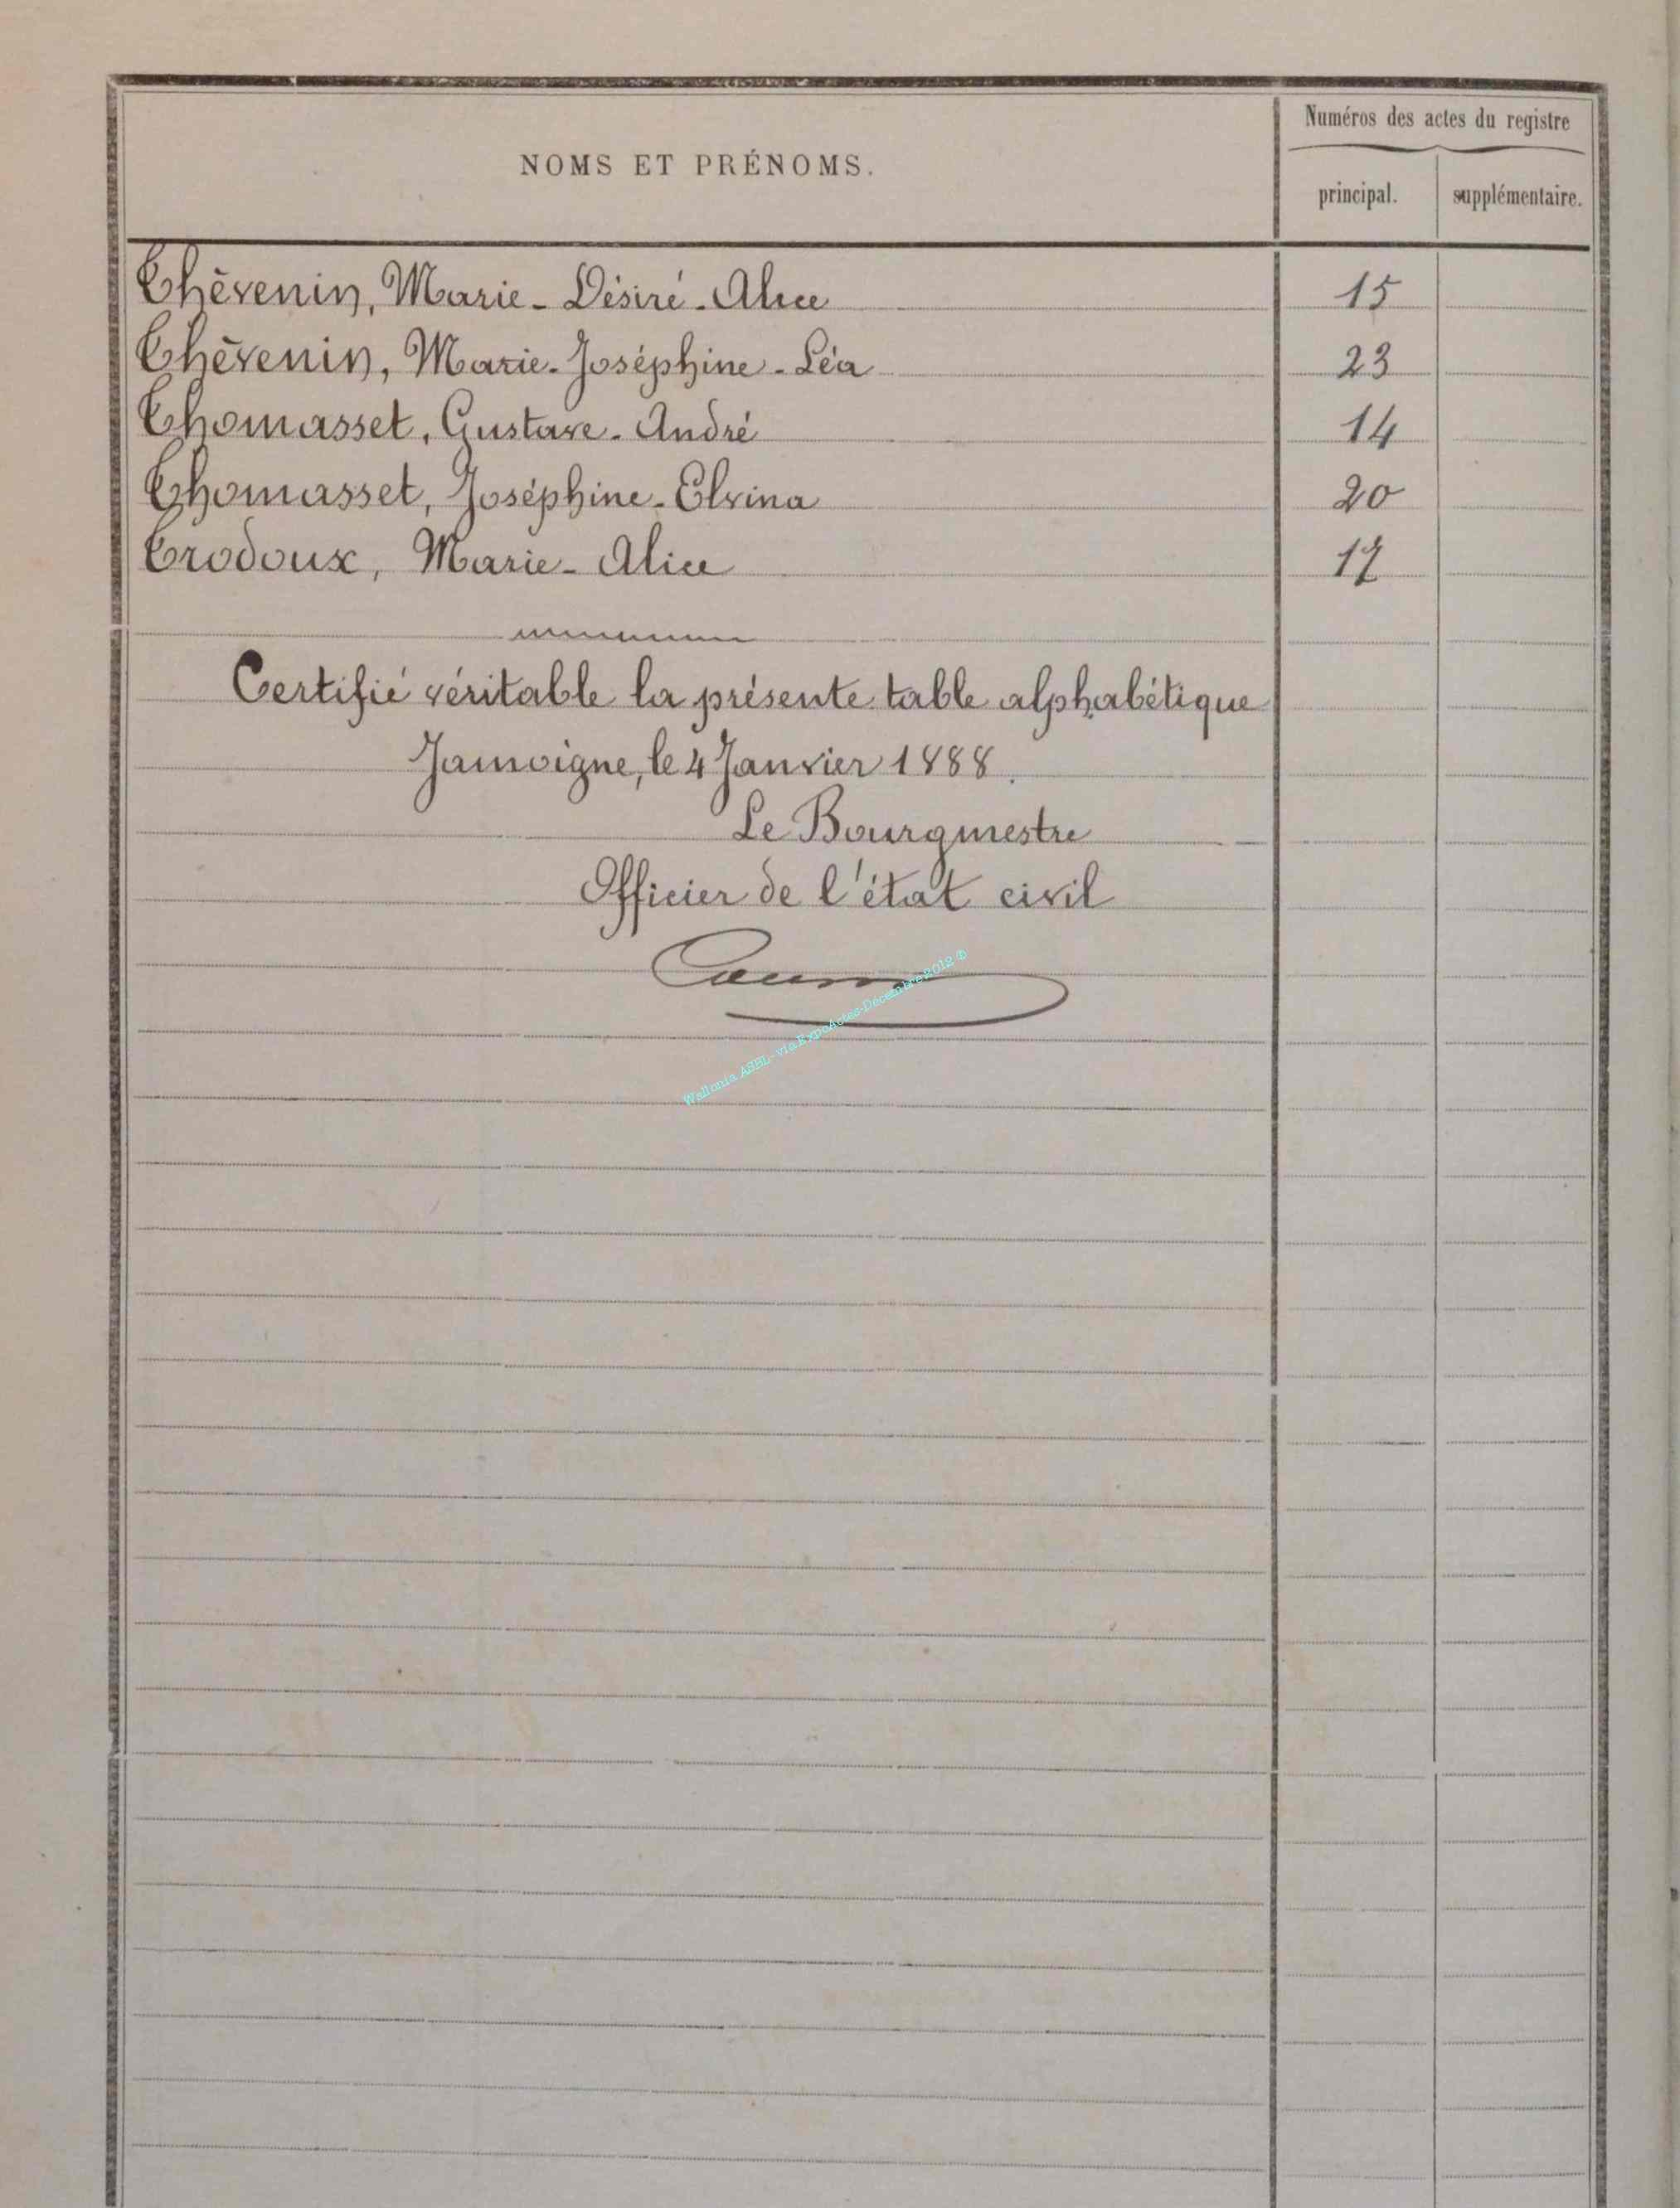 NOMS ET PRÉNOMS.
Numéros des actes du registre
principal.
supplémentaire.
Thévenin, Marie-Désiré-Alice 15
Thévenin, Marie-Joséphine-Léa 23
Thomasset, Gustave-André 14
Thomasset, Joséphine-Elvina 20
Trodoux, Marie-Alice 17
Certifié véritable la présente table alphabétique
Jamoigne, le 4 Janvier 1888.
Le Bourgmestre
Officier de l'état civil
Wallonia ASBL - via ExpoActes-Décembre 2012 ©